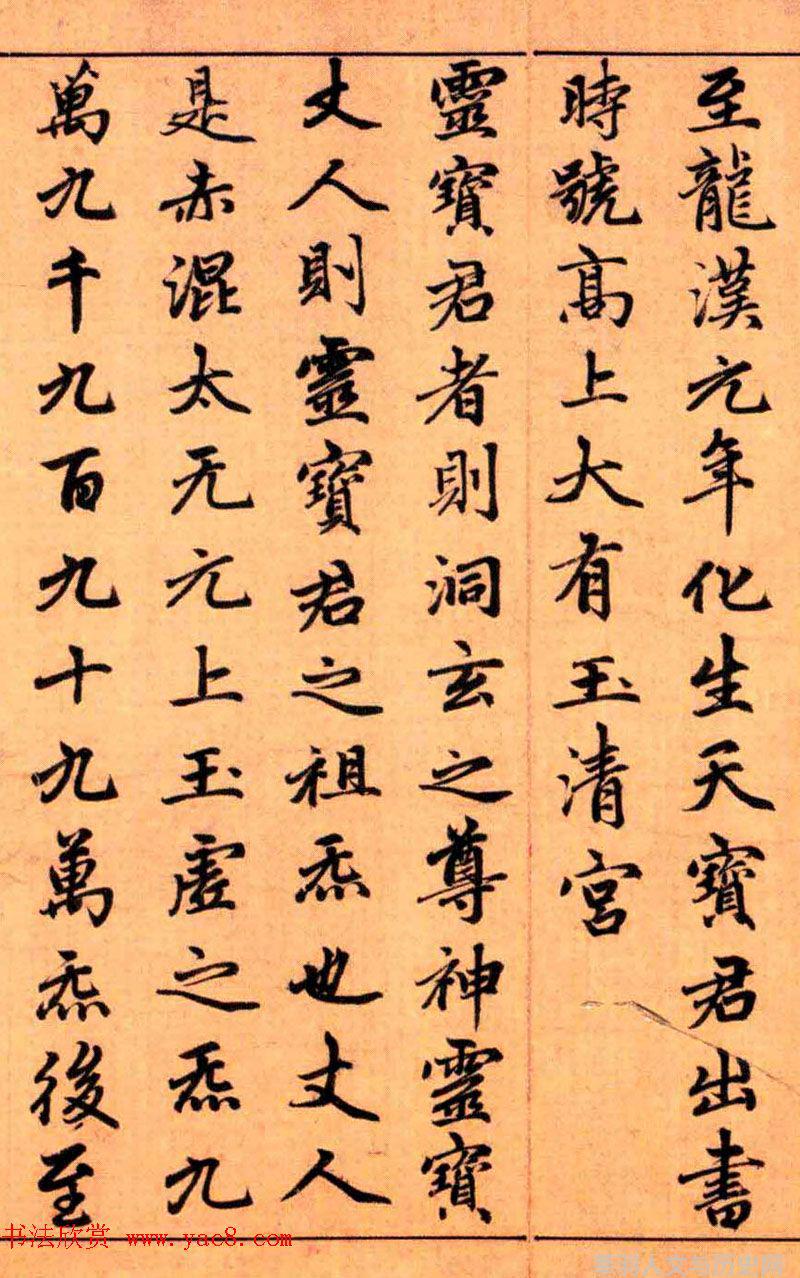 至龍漢元年化生天寶君出書
時號高上大有玉清宮
靈寶君者則洞玄之尊神靈寶
丈人則靈寶君之祖炁也丈人
是赤混太无元上玉虛之炁九
萬九千九百九十九萬炁後至
书法欣赏 www.yac8.com